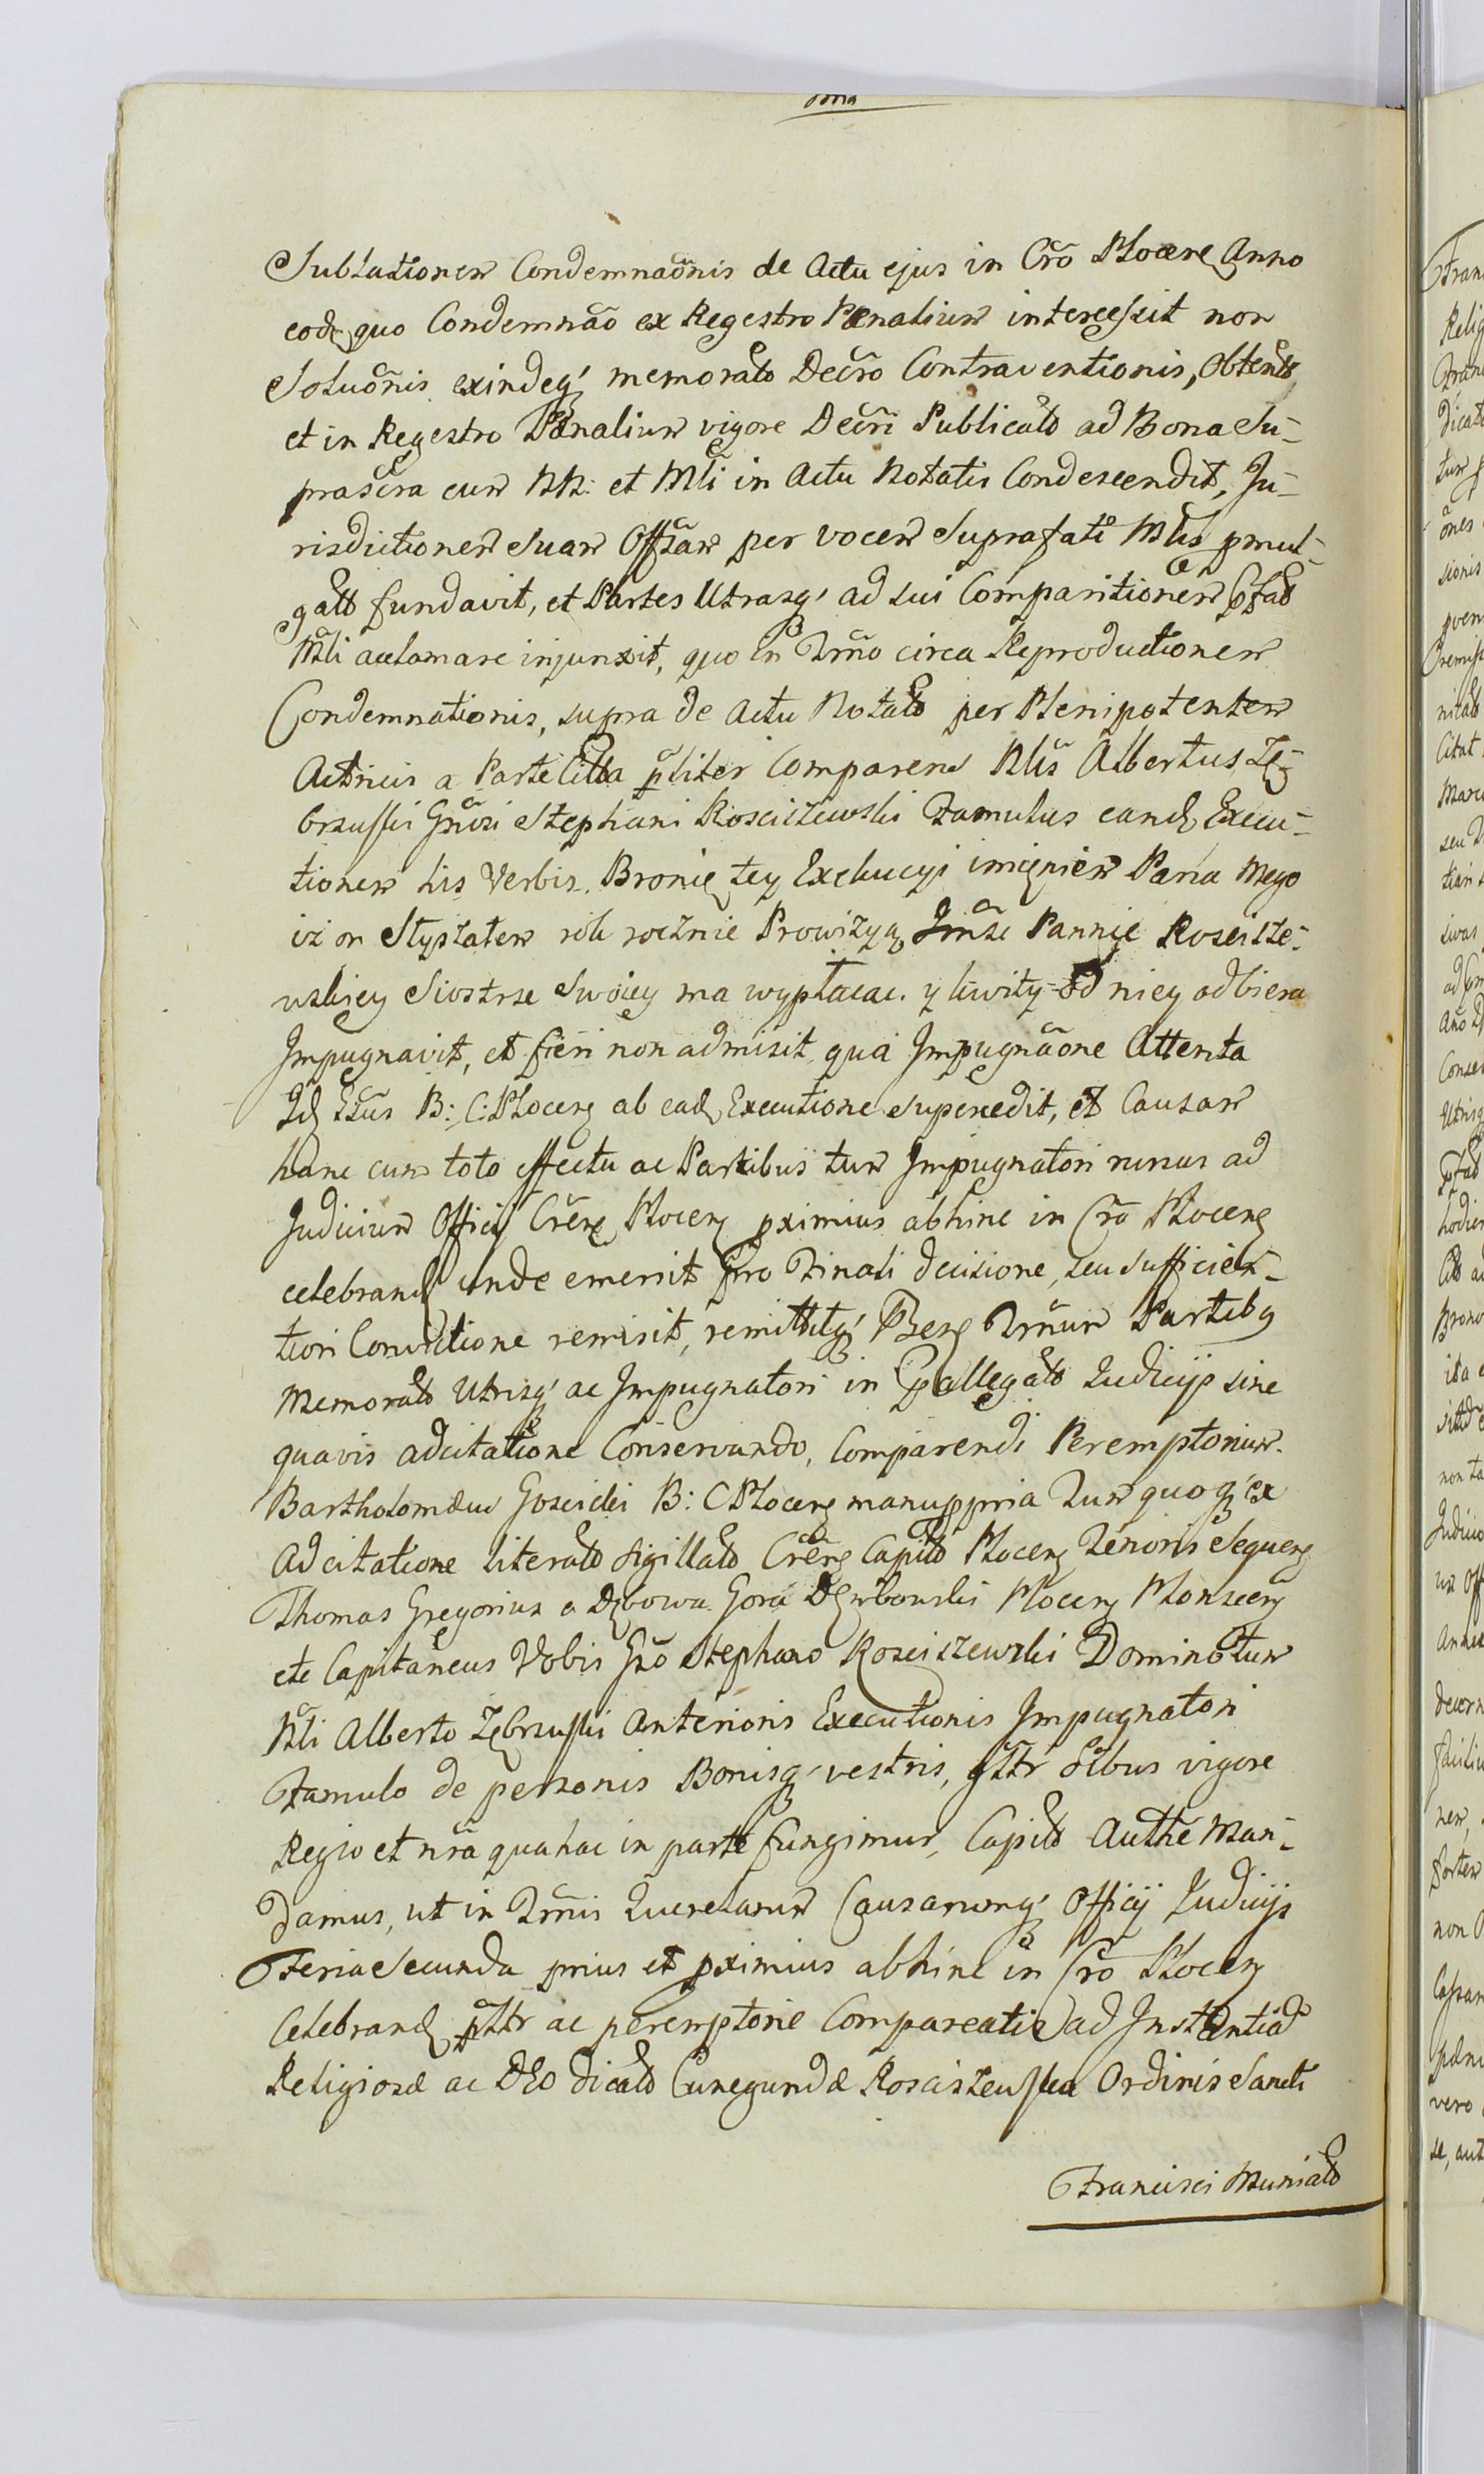 Sublationem Condemnaõnis de Actu ejus in Crõ Plocen Anno
eod quo Condemnaõ ex Regestro Pœnalium intercessit non
Soluõnis exindeq memorato Decro Contraventionis, Obtento
et in Regestro Pœnalium vigore Decri Publicato ad Bona Su-
prascra cum NN: et Mli in Actu Notatis Condescendit, Ju-
risdictionem Suam Offsam per vocem Suprafati Mlis pmul-
gato fundavit, et Partes Utrasq ad sui Comparitionem
Mli acclamare injunxit, quo in Trmo circa Reproductionem
Condemnationis, supra de Actu Notato per Plenipotentem
Actricis a Parte Citta pliter Comparens Nlis Albertus Zę-
brzuski Gnosi Stephani Kosciszewski Famulus eand Execu-
tionem his Verbis. Bronię tey Exekucyi imięniem Pana Mego
iz on Styplatem rok rocznie Prowizyą Jmsc Pannie Koscisze-
wskiey Siostrze Swoiey ma wypłacac. y kwity od niey odbiera
Impugnavit, et fieri non admisit, qua Impugnãone Attenta
Id Gsus B: C: Plocen ab ead Executione supersedit, et Causam
hanc cum toto effectu ac Partibus tum Impugnatori rursus ad
Judicium Officij Cren Plocen pximius abhinc in Cro Plocen
celebrand unde emersit pro Finali decisione, seu sufficien-
tiori Convictione remisit, remittitq Trmum Partibq
Memorato Utrisq ac Impugnatori in pallegato Judicijs sine
quavis adcitatione Conservando, Comparendi Peremptorium.
Bartholomæus Goscicki B: C Plocen manuppria Tum quoq ex
Adcitatione Literato Sigillato Cren Capito Plocen Tenoris Sequen
Thomas Gregorius a Dębowa Gora Dęmbowski Plocen Plonscen
etc Capitaneus Vobis Gso Stephano Kosciszewski Domino tum
Nli Alberto Zębrzuski Anterioris Executionis Impugnatori
Famulo de personis Bonisq vestris, gttr oibus vigore
Regio et nra qua hac in parte fungimur, Capito Authe Man-
damus, ut in Trmis Querelarum Causarumq Officij Judicijs
Feria Secunda prius et pximius abhinc in Cro Plocen
Celebrand pttr ac peremptorie Compareatis ad Instantia
Religiosæ ac DEO dicato Cunegundæ Kosciszewska Ordinis Sancti
Francisci Moniato